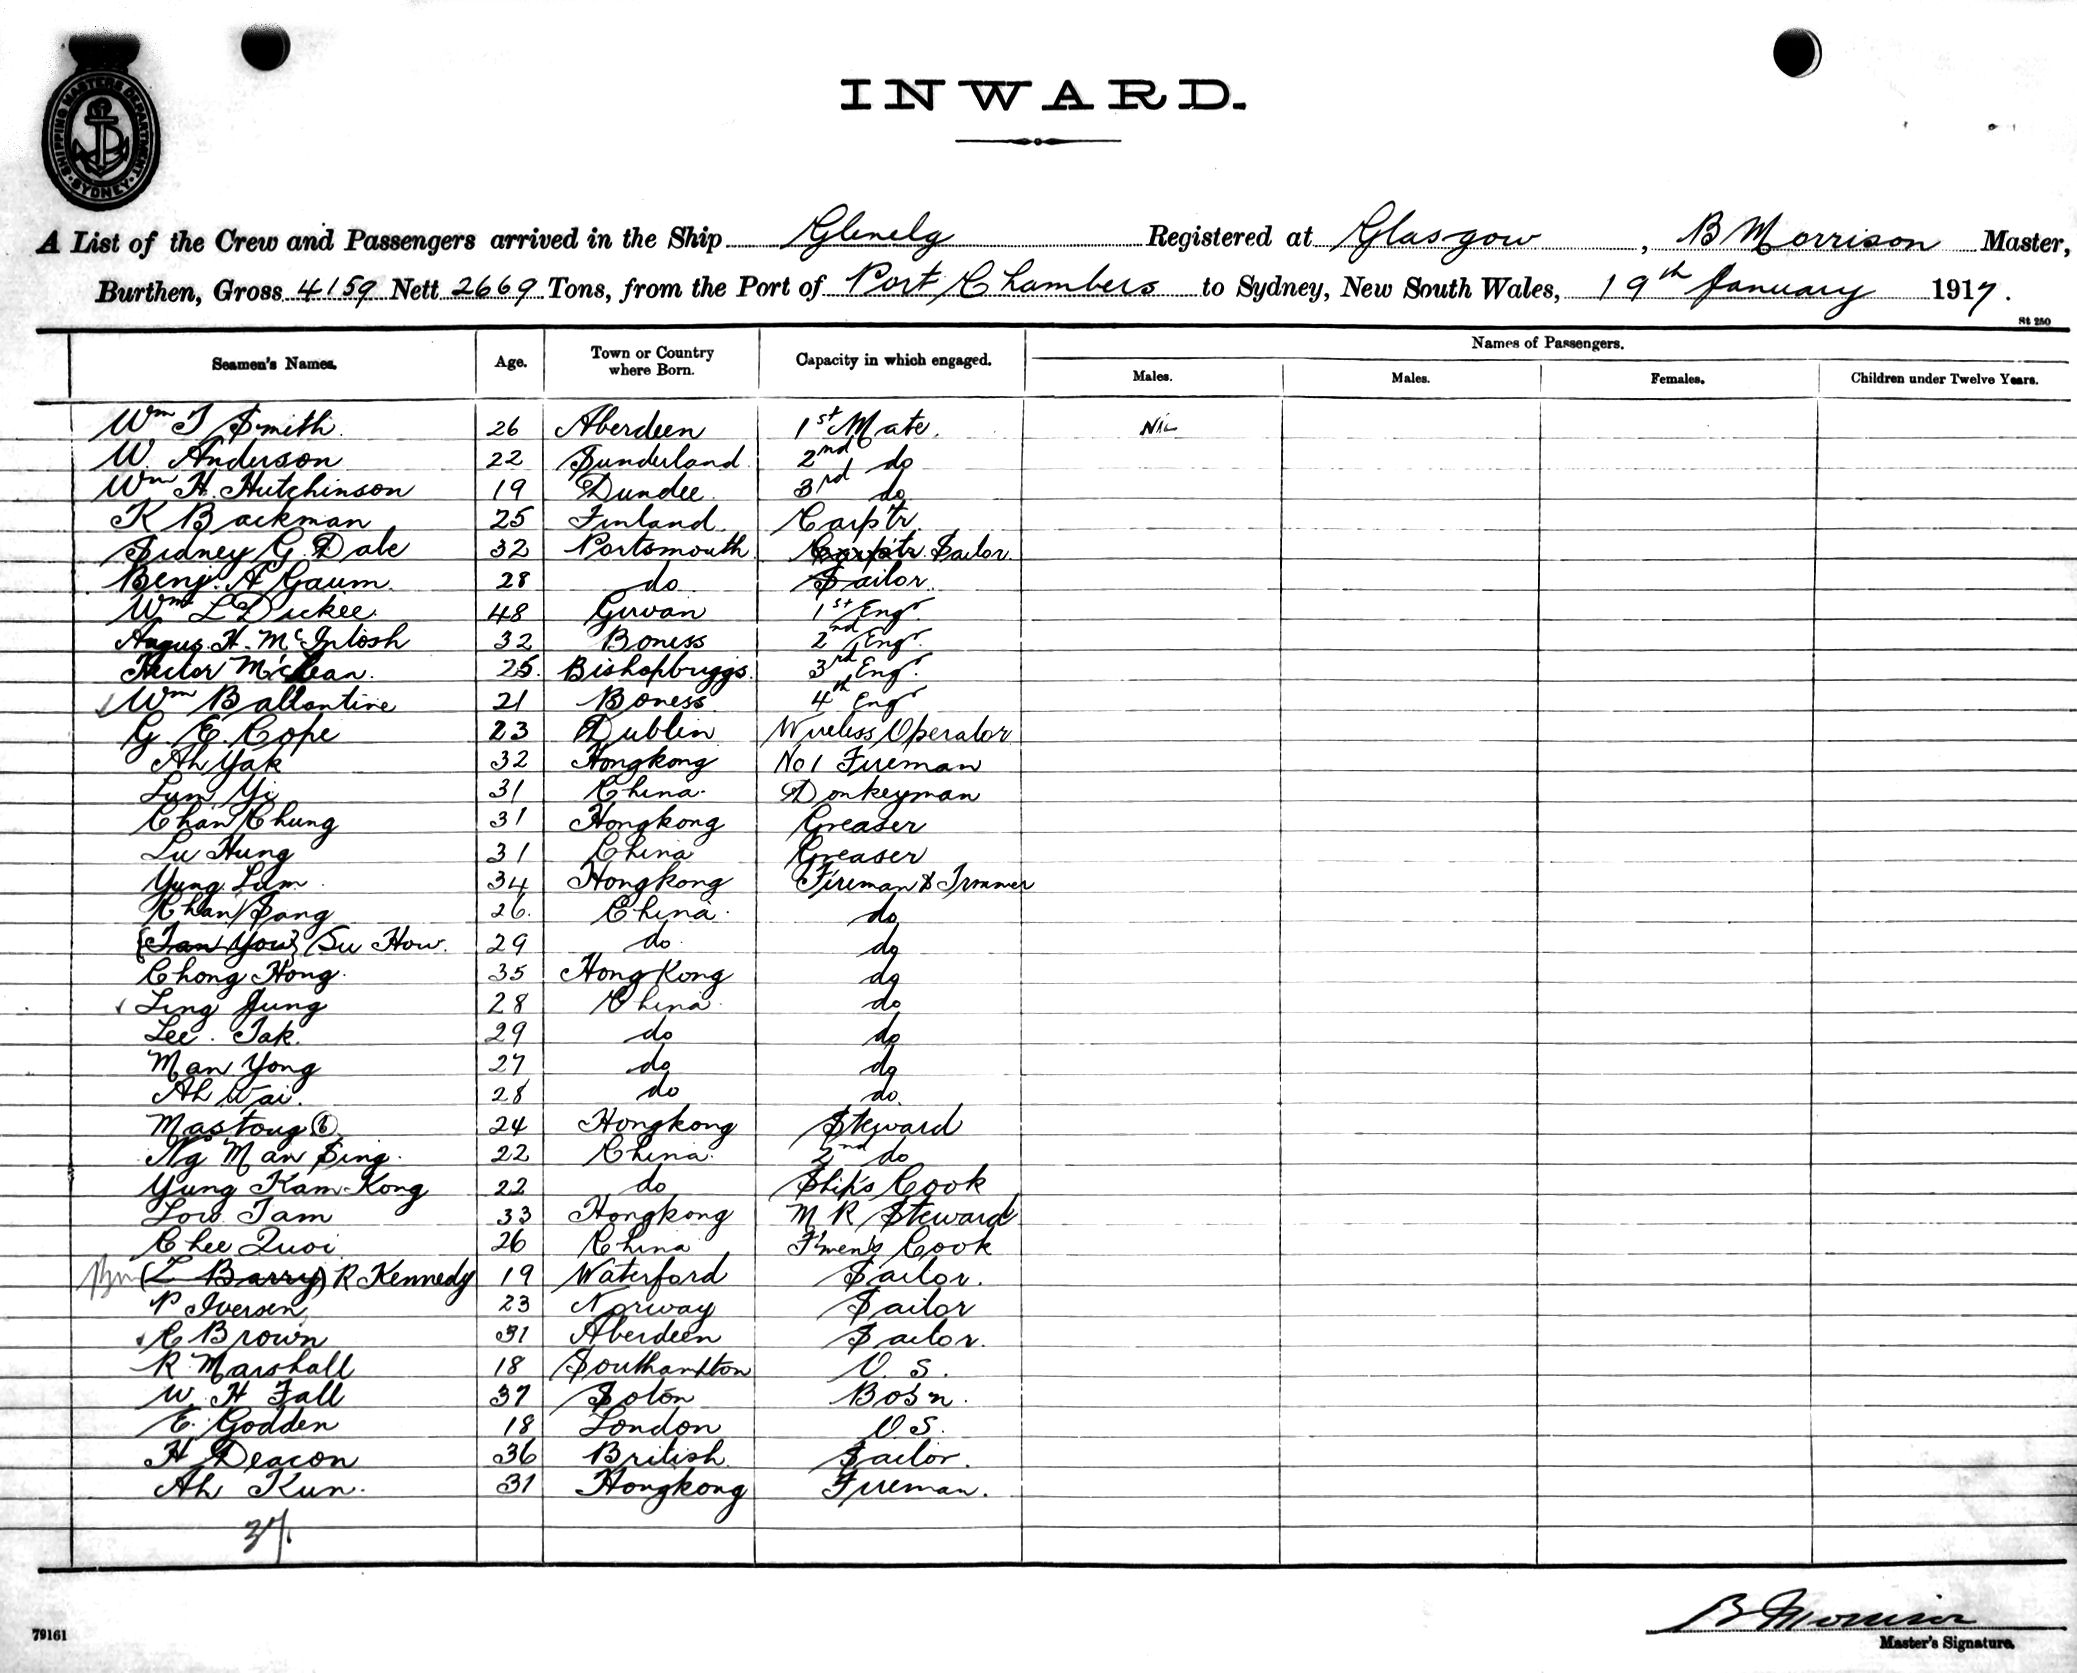 SHIPPING MASTERS DEPARTMENT
SYDNEY
INWARD.
A List of the Crew and Passengers arrived in the Ship Glenelg Registered at Glasgow, B Morrison Master,
Burthen, Gross 4159 Nett 2669 Tons, from the Port of Port Chambers to Sydney, New South Wales, 19th January 1917.
St 250
Seamen's Names. Age. Town or Country where Born. Capacity in which engaged. Names of Passengers.
Males. Males. Females. Children under Twelve Years.
Wm T Smith 26 Aberdeen 1st Mate. Nil
W. Anderson 22 Sunderland 2nd do
Wm H. Hutchinson 19 Dundee. 3rd do
K Backman 25 Finland. Carp'tr.
Sidney G. Dale 32 Portsmouth. Carp'tr. Sailor.
Benj. A Gaum. 28 do Sailor.
Wm L Dickee. 48 Girvan 1st Engr.
Angus H. McIntosh 32 Boness 2nd Engr.
Hector McLean. 25. Bishopbriggs. 3rd Engr.
Wm Ballantine 21 Boness. 4th Engr
G. E. Cope 23 Dublin Wireless Operator
Ah Yak 32 Hongkong No 1 Fireman
Lum Yi 31 China. Donkeyman
Chan Chung 31 Hongkong Greaser
Lu Hung 31 China Greaser
Yung Lam 34 Hongkong Fireman & Trimmer
Chan Sang 26. China. do
(Tan You) Su How. 29 do. do
Chong Hong. 35 Hong Kong do
Ling Jung 28 China. do
Lee. Tak. 29 do do
Man Yong 27 do do
Ah Wai. 28 do do.
Mastoug 24 Hongkong Steward
Ng Man Sing. 22 China. 2nd do
Yung Kam Kong 22 do Ship's Cook
Low Tam 33 Hongkong M R Steward
Chee Quoi 26 China F'men's Cook
(L Barry) R Kennedy 19 Waterford Sailor.
P Iversen, 23 Norway Sailor
C Brown 31 Aberdeen Sailor.
R Marshall 18 Southampton O. S.
W. H Fall 37 Soton Bos'n.
E. Godden 18 London O S.
H Deacon 36 British. Sailor.
Ah Kun. 31 Hongkong Fireman.
37.
B Morrison
Master's Signature.
79161